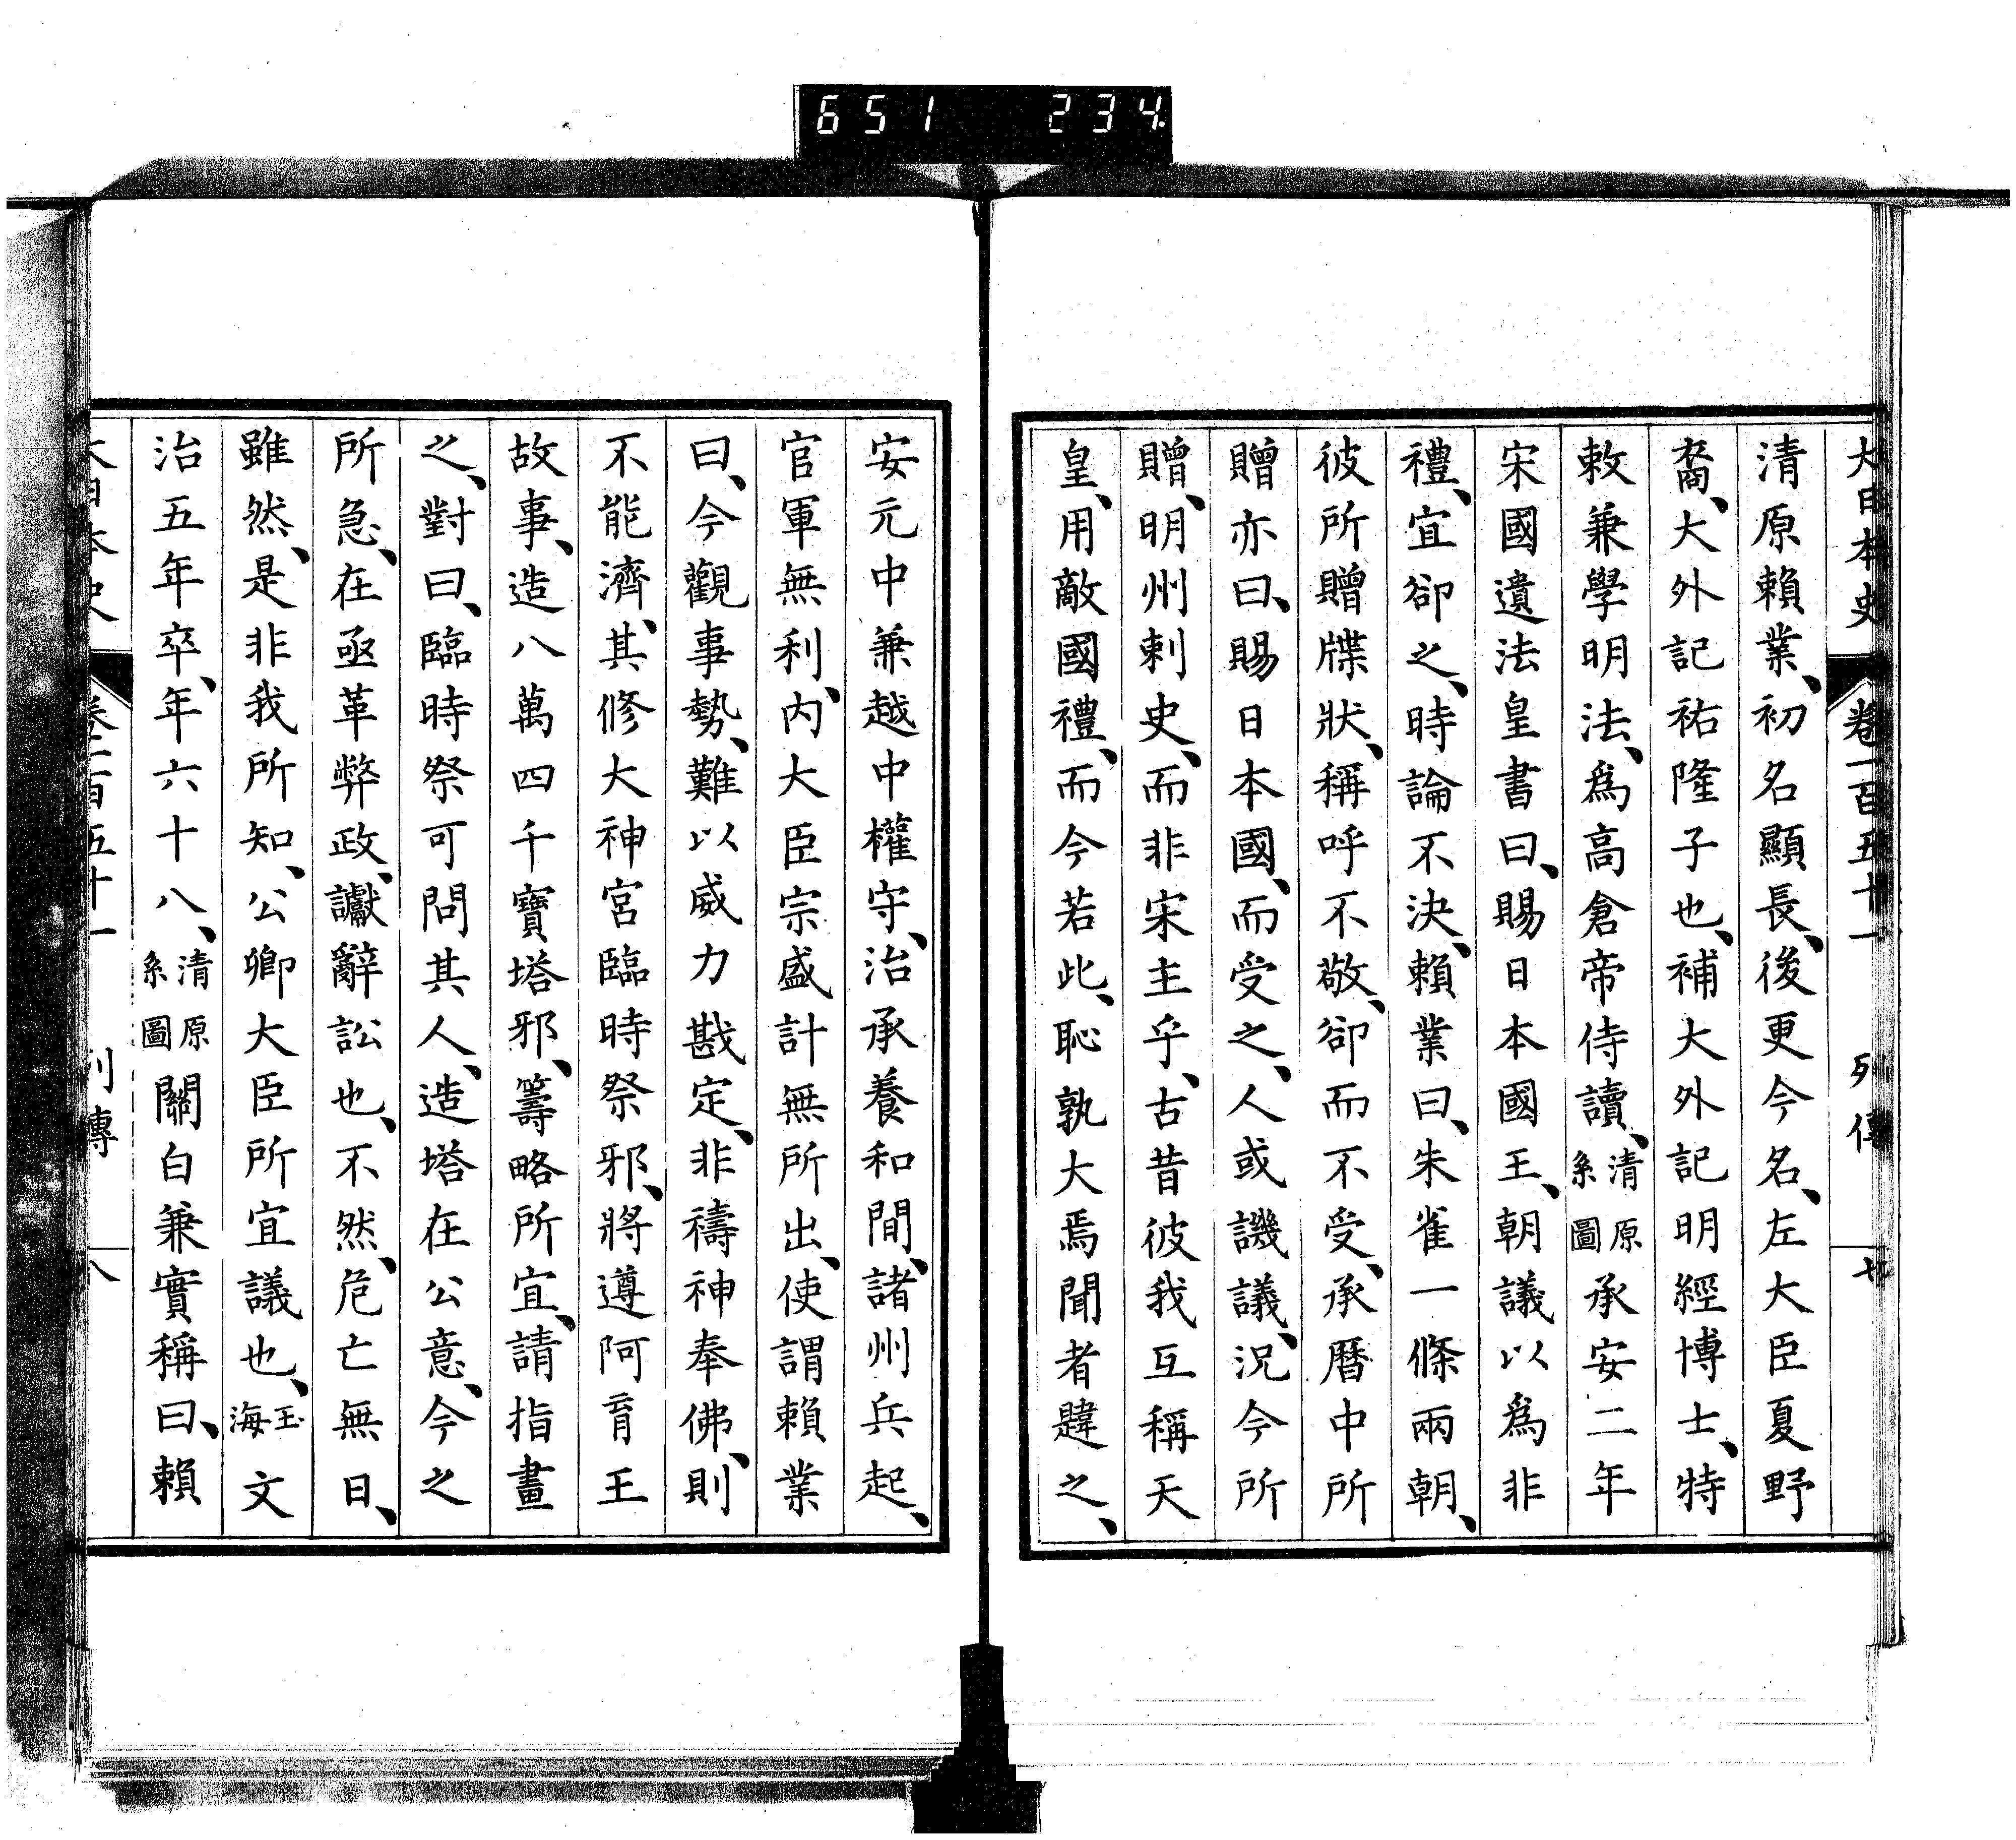 651 234
大日本史 卷一百五十一 列傳 七
清原賴業、初名顯長、後更今名、左大臣夏野
裔、大外記祐隆子也、補大外記明經博士、特
敕兼學明法、爲高倉帝侍讀、清原系圖承安二年
宋國遺法皇書曰、賜日本國王、朝議以爲非
禮、宜卻之、時論不決、賴業曰、朱雀一條兩朝、
彼所贈牒狀、稱呼不敬、卻而不受、承曆中所
贈亦曰、賜日本國、而受之、人或譏議、況今所
贈、明州刺史、而非宋主乎、古昔彼我互稱天
皇、用敵國禮、而今若此、恥孰大焉聞者韙之、
安元中兼越中權守、治承養和間、諸州兵起、
官軍無利、內大臣宗盛計無所出、使謂賴業
曰、今觀事勢、難以威力戡定、非禱神奉佛、則
不能濟、其修大神宮臨時祭邪、將遵阿育王
故事、造八萬四千寶塔邪、籌略所宜、請指畫
之、對曰、臨時祭可問其人、造塔在公意、今之
所急、在亟革弊政、讞辭訟也、不然、危亡無日、
雖然、是非我所知、公卿大臣所宜議也、玉海文
治五年卒、年六十八、清原系圖關白兼實稱曰、賴
大日本史 卷一百五十一 列傳 八